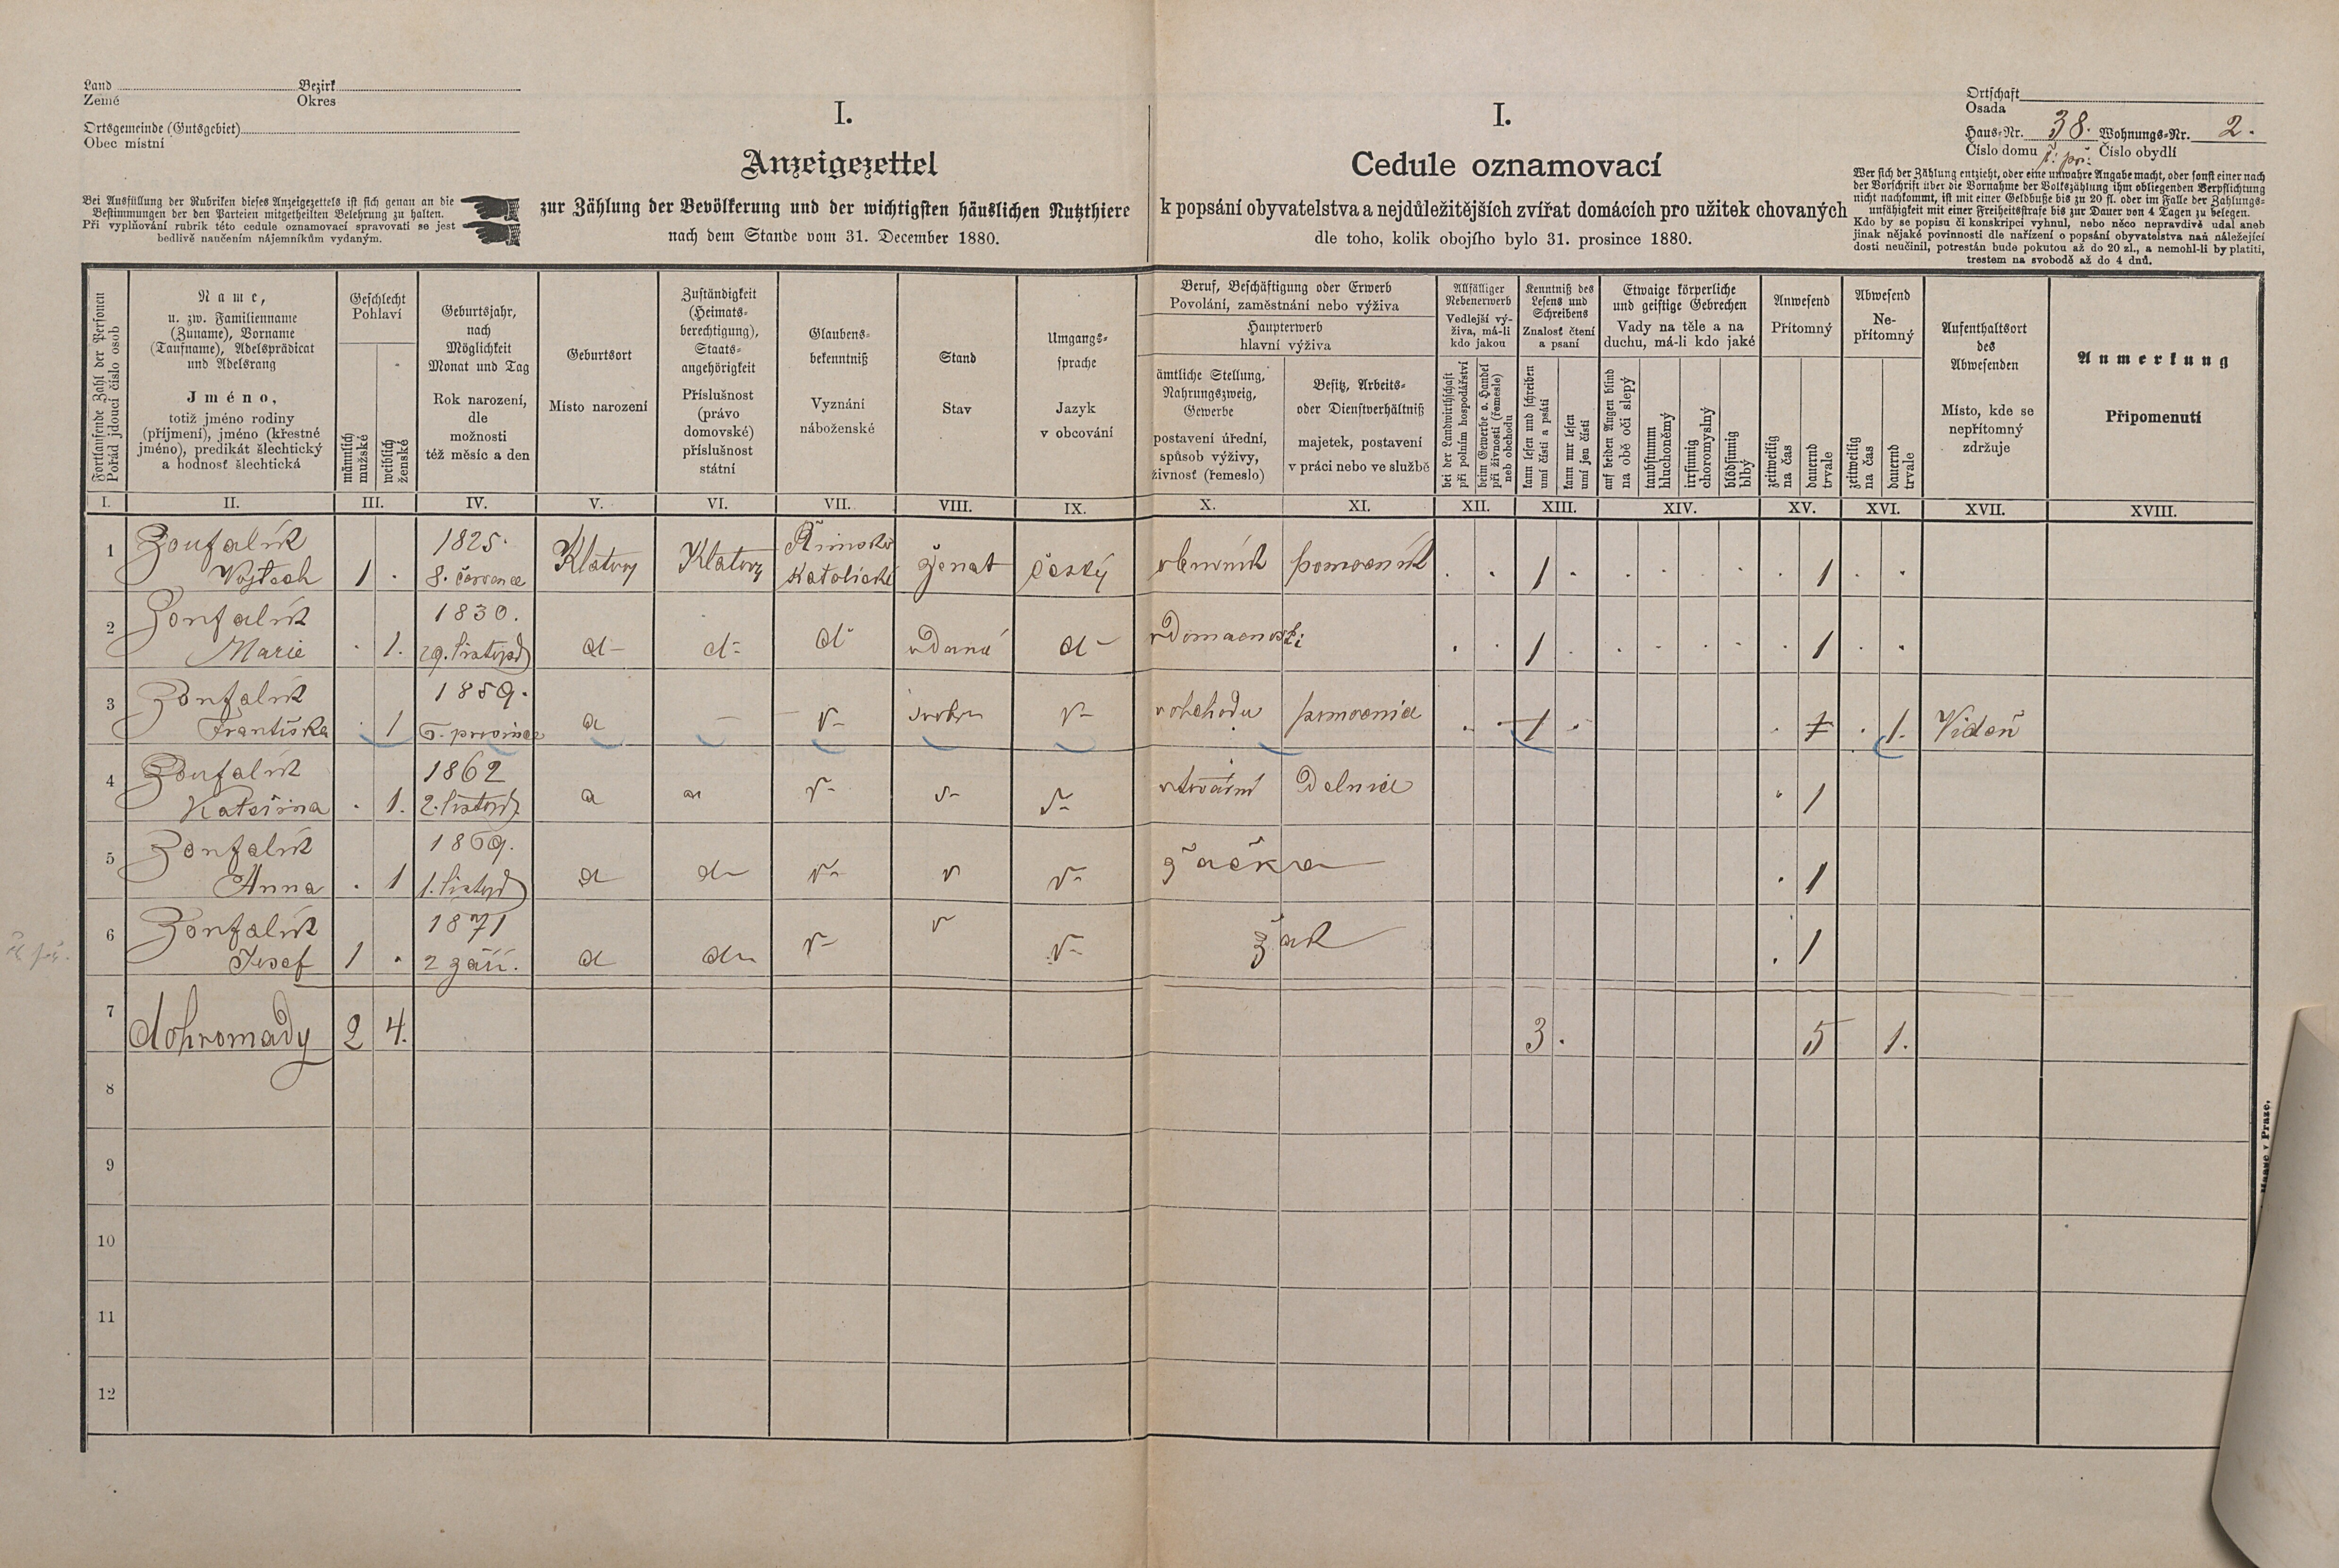 Land Bezirk
Země Okres
Ortsgemeinde (Gutsgebiet)
Obec místní
Bei Ausfüllung der Rubriken dieses Anzeigezettels ist sich genau an die
Bestimmungen der den Parteien mitgetheilten Belehrung zu halten.
Při vyplňování rubrik této cedule oznamovací spravovati se jest
bedlivě naučením nájemníkům vydaným.
I.
Anzeigezettel
zur Zählung der Bevölkerung und der wichtigsten häuslichen Nutzthiere
nach dem Stande vom 31. December 1880.
I.
Cedule oznamovací
k popsání obyvatelstva a nejdůležitějších zvířat domácích pro užitek chovaných
dle toho, kolik obojího bylo 31. prosince 1880.
Ortschaft
Osada
Haus-Nr. 38. Wohnungs-Nr. 2.
Číslo domu Číslo obydlí
Wer sich der Zählung entzieht, oder eine unwahre Angabe macht, oder sonst einer nach
der Vorschrift über die Vornahme der Volkszählung ihm obliegenden Verpflichtung
nicht nachkommt, ist mit einer Geldbuße bis zu 20 fl. oder im Falle der Zahlungs-
unfähigkeit mit einer Freiheitsstrafe bis zur Dauer von 4 Tagen zu belegen.
Kdo by se popisu či konskripci vyhnul, nebo něco nepravdivě udal aneb
jinak nějaké povinnosti dle nařízení o popsání obyvatelstva naň náležející
dosti neučinil, potrestán bude pokutou až do 20 zl., a nemohl-li by platiti,
trestem na svobodě až do 4 dnů.
Fortlaufende Zahl der Personen
Pořád jdoucí číslo osob
Name,
u. zw. Familienname
(Zuname), Vorname
(Taufname), Adelsprädicat
und Adelsrang
Jméno,
totiž jméno rodiny
(příjmení), jméno (křestné
jméno), predikát šlechtický
a hodnosť šlechtická
Geschlecht
Pohlaví
männlich
mužské
weiblich
ženské
Geburtsjahr,
nach
Möglichkeit
Monat und Tag
Rok narození,
dle
možnosti
též měsíc a den
Geburtsort
Místo narození
Zuständigkeit
(Heimats-
berechtigung),
Staats-
angehörigkeit
Příslušnost
(právo
domovské)
příslušnost
státní
Glaubens-
bekenntniß
Vyznání
náboženské
Stand
Stav
Umgangs-
sprache
Jazyk
v obcování
Beruf, Beschäftigung oder Erwerb
Povolání, zaměstnání nebo výživa
Haupterwerb
hlavní výživa
ämtliche Stellung,
Nahrungszweig,
Gewerbe
postavení úřední,
spůsob výživy,
živnosť (řemeslo)
Besitz, Arbeits-
oder Dienstverhältniß
majetek, postavení
v práci nebo ve službě
Allfälliger
Nebenerwerb
Vedlejší vý-
živa, má-li
kdo jakou
bei der Landwirthschaft
při polním hospodářství
beim Gewerbe o. Handel
při živnosti (řemesle)
neb obchodu
Kenntniß des
Lesens und
Schreibens
Znalosť čtení
a psaní
kann lesen und schreiben
umí čísti a psáti
kann nur lesen
umí jen čísti
Etwaige körperliche
und geistige Gebrechen
Vady na těle a na
duchu, má-li kdo jaké
auf beiden Augen blind
na obě oči slepý
taubstumm
hluchoněmý
irrsinnig
choromyslný
blödsinnig
blbý
Anwesend
Přítomný
zeitweilig
na čas
dauernd
trvale
Abwesend
Ne-
přítomný
zeitweilig
na čas
dauernd
trvale
Aufenthaltsort
des
Abwesenden
Místo, kde se
nepřítomný
zdržuje
Anmerkung
Připomenutí
I. II. III. IV. V. VI. VII. VIII. IX. X. XI. XII. XIII. XIV. XV. XVI. XVII. XVIII.
1 Zoufalík 1825. Římsko
Vojtěch 1 . 8. července Klatovy Klatovy Katolické ženat český obuvník pomocník . . 1 . . . . . . 1 . .
2 Zoufalík 1830.
Marie . 1. 29. listopad d- d- d- vdaná d- v domácnosti . . 1 . . . . . . 1 . .
3 Zoufalík 1859.
Františka . 1 6. prosince d - v- svobn v- v obchodu pomocnice . . 1 . . 1 . 1. Vídeň
4 Zoufalík 1862
Kateřina . 1. 2. listopd. d d v- v- v- v továrni Dělnice . 1
5 Zoufalík 1869.
Anna . 1 1. listopd d d- v- v v- žačka . 1
6 Zoufalík 1871
Josef 1 . 2 září. d d- v- v v- žák . 1
7 dohromady 2 4. 3. 5 1.
8
9
10
11
12